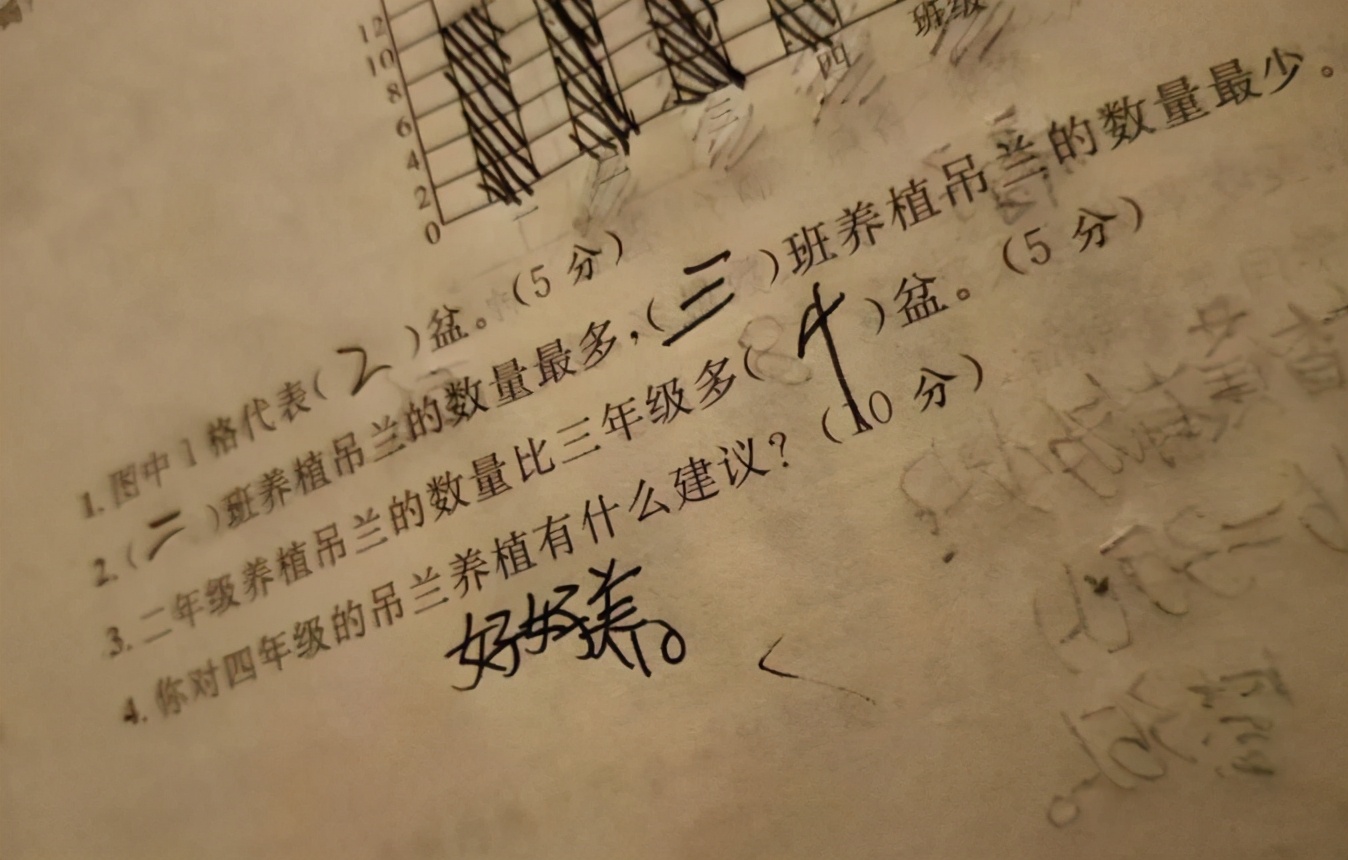 12
10
8
6
4
2
0
一 二 三 四 班级
1. 图中1格代表( 2 )盆。(5分)
2. ( 二 )班养植吊兰的数量最多,( 三 )班养植吊兰的数量最少。
3. 二年级养植吊兰的数量比三年级多( 4 )盆。(5分)
4. 你对四年级的吊兰养植有什么建议?(10分)
好好养。